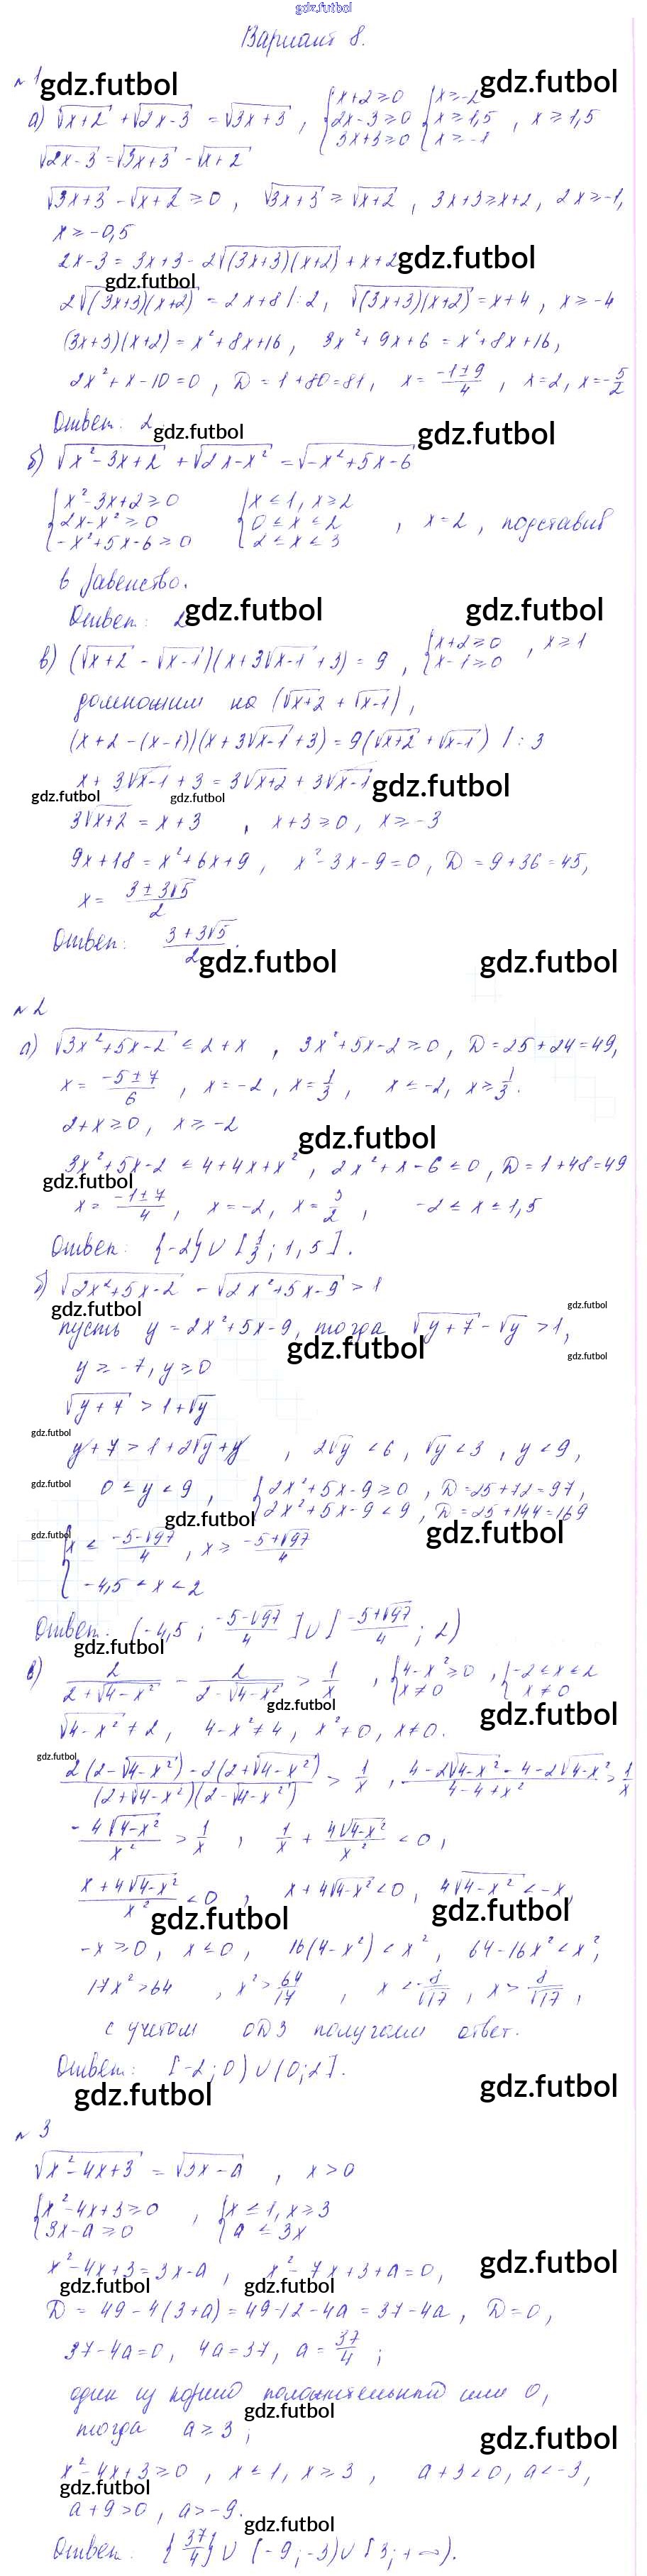 gdz.futbol
Вариант 8.
№ 1 gdz.futbol gdz.futbol
а) √(x+2) + √(2x-3) = √(3x+3) , { x+2≥0 2x-3≥0 3x+3≥0 { x≥-2 x≥1,5 x≥-1 , x≥1,5
√(2x-3) = √(3x+3) - √(x+2)
√(3x+3) - √(x+2) ≥ 0 , √(3x+3) ≥ √(x+2) , 3x+3≥x+2, 2x≥-1,
x≥-0,5
2x-3 = 3x+3-2√((3x+3)(x+2)) + x+2 gdz.futbol
gdz.futbol
2√((3x+3)(x+2)) = 2x+8 |:2, √((3x+3)(x+2)) = x+4 , x≥-4
(3x+3)(x+2) = x²+8x+16, 3x²+9x+6 = x²+8x+16,
2x²+x-10=0 , D=1+80=81, x= (-1±9)/4 , x=2, x=-5/2
Ответ: 2. gdz.futbol gdz.futbol
б) √(x²-3x+2) + √(2x-x²) = √(-x²+5x-6)
{ x²-3x+2≥0 2x-x²≥0 -x²+5x-6≥0 { x≤1, x≥2 0≤x≤2 2≤x≤3 , x=2 , подставив
в равенство.
Ответ: 2 gdz.futbol gdz.futbol
в) (√(x+2) - √(x-1))(x+3√(x-1)+3) = 9 , { x+2≥0 x-1≥0 , x≥1
домножим на (√(x+2) + √(x-1)),
(x+2-(x-1))(x+3√(x-1)+3) = 9(√(x+2) + √(x-1)) |:3
x+3√(x-1)+3 = 3√(x+2) + 3√(x-1) gdz.futbol
gdz.futbol gdz.futbol
3√(x+2) = x+3 , x+3≥0, x≥-3
9x+18 = x²+6x+9 , x²-3x-9=0, D=9+36=45,
x= (3±3√5)/2
Ответ: (3+3√5)/2. gdz.futbol gdz.futbol
№ 2
а) √(3x²+5x-2) ≤ 2+x , 3x²+5x-2≥0, D=25+24=49,
x= (-5±7)/6 , x=-2, x=1/3 , x≤-2, x≥1/3.
2+x≥0, x≥-2 gdz.futbol
3x²+5x-2 ≤ 4+4x+x² , 2x²+x-6≤0, D=1+48=49
gdz.futbol
x= (-1±7)/4 , x=-2, x=3/2 , -2≤x≤1,5
Ответ: {-2} ∪ [1/3; 1,5].
б) √(2x²+5x-2) - √(2x²+5x-9) > 1
gdz.futbol gdz.futbol
пусть y=2x²+5x-9, тогда √(y+7) - √y > 1,
gdz.futbol gdz.futbol
y≥-7, y≥0
√(y+7) > 1+√y
gdz.futbol
y+7 > 1+2√y+y , 2√y<6, √y<3 , y<9,
gdz.futbol 0≤y<9 , { 2x²+5x-9≥0 , D=25+72=97, 2x²+5x-9<9 , D=25+144=169
gdz.futbol gdz.futbol
gdz.futbol { x≤ (-5-√97)/4 , x≥ (-5+√97)/4
-4,5<x<2
Ответ: (-4,5; (-5-√97)/4] ∪ [(-5+√97)/4; 2)
gdz.futbol
в) 2/(2+√(4-x²)) - 2/(2-√(4-x²)) > 1/x , { 4-x²≥0 x≠0 , { -2≤x≤2 x≠0
gdz.futbol gdz.futbol
√(4-x²)≠2, 4-x²≠4, x²≠0, x≠0.
gdz.futbol
(2(2-√(4-x²))-2(2+√(4-x²)))/((2+√(4-x²))(2-√(4-x²))) > 1/x , (4-2√(4-x²)-4-2√(4-x²))/(4-4+x²) > 1/x
-4√(4-x²)/x² > 1/x , 1/x + 4√(4-x²)/x² < 0 ,
(x+4√(4-x²))/x² < 0 , x+4√(4-x²)<0, 4√(4-x²)<-x,
gdz.futbol gdz.futbol
-x≥0, x≤0, 16(4-x²)<x², 64-16x²<x²,
17x²>64 , x²>64/17 , x<-8/√17 , x>8/√17 ,
с учетом ОДЗ получаем ответ.
Ответ: [-2;0)∪(0;2].
gdz.futbol gdz.futbol
№ 3
√(x²-4x+3) = √(3x-a) , x>0
{ x²-4x+3≥0 3x-a≥0 , { x≤1, x≥3 a≤3x
x²-4x+3=3x-a , x²-7x+3+a=0, gdz.futbol
gdz.futbol gdz.futbol
D=49-4(3+a)=49-12-4a=37-4a, D=0,
37-4a=0, 4a=37, a=37/4 ;
один из корней положительный или 0,
gdz.futbol
тогда a≥3 ; gdz.futbol
x²-4x+3≥0 , x≤1, x≥3 , a+3<0, a<-3,
gdz.futbol
a+9>0, a>-9.
gdz.futbol
Ответ: {37/4} ∪ (-9;-3)∪[3;+∞).